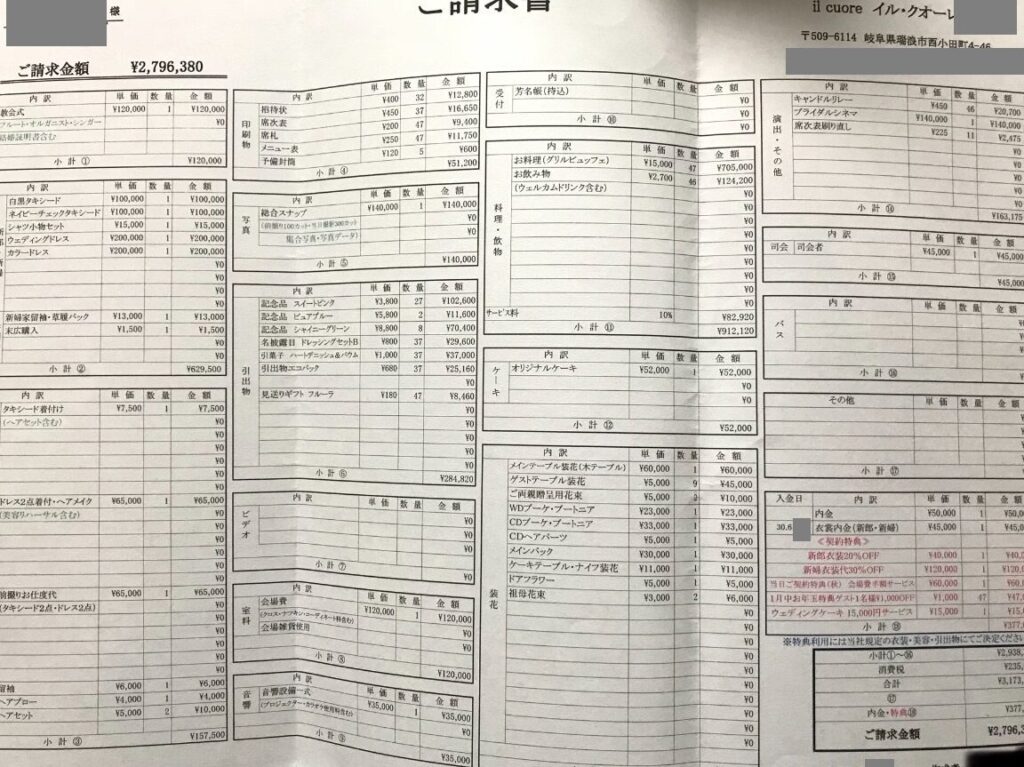 様
ご請求書
il cuore イル・クオーレ
〒509-6114 岐阜県瑞浪市西小田町4-46
ご請求金額 ¥2,796,380
内 訳 単 価 数 量 金 額
教会式 ¥120,000 1 ¥120,000
フルート・オルガニスト・シンガー ¥0
結婚証明書含む ¥0
¥0
小 計 ① ¥120,000
内 訳 単 価 数 量 金 額
白黒タキシード ¥100,000 1 ¥100,000
ネイビーチェックタキシード ¥100,000 1 ¥100,000
シャツ小物セット ¥15,000 1 ¥15,000
ウェディングドレス ¥200,000 1 ¥200,000
カラードレス ¥200,000 1 ¥200,000
¥0
¥0
¥0
¥0
新婦家留袖・草履バック ¥13,000 1 ¥13,000
末広購入 ¥1,500 1 ¥1,500
¥0
¥0
小 計 ② ¥629,500
内 訳 単 価 数 量 金 額
タキシード着付け ¥7,500 1 ¥7,500
(ヘアセット含む) ¥0
¥0
¥0
¥0
¥0
¥0
ドレス2点着付・ヘアメイク ¥65,000 1 ¥65,000
(美容リハーサル含む) ¥0
¥0
¥0
¥0
¥0
¥0
前撮りお仕度代 ¥65,000 1 ¥65,000
(タキシード2点・ドレス2点) ¥0
¥0
¥0
¥0
¥0
¥0
留袖 ¥6,000 1 ¥6,000
ヘアブロー ¥4,000 1 ¥4,000
ヘアセット ¥5,000 2 ¥10,000
¥0
小 計 ③ ¥157,500
印刷物
内 訳 単 価 数 量 金 額
招待状 ¥400 32 ¥12,800
席次表 ¥450 37 ¥16,650
席札 ¥200 47 ¥9,400
メニュー表 ¥250 47 ¥11,750
予備封筒 ¥120 5 ¥600
小 計 ④ ¥51,200
写真
内 訳 単 価 数 量 金 額
総合スナップ ¥140,000 1 ¥140,000
(前撮り100カット・当日撮影300カット ¥0
集合写真・写真データ) ¥0
¥0
小 計 ⑤ ¥140,000
引出物
内 訳 単 価 数 量 金 額
記念品 スイートピンク ¥3,800 27 ¥102,600
記念品 ピュアブルー ¥5,800 2 ¥11,600
記念品 シャイニーグリーン ¥8,800 8 ¥70,400
名披露目 ドレッシングセットB ¥800 37 ¥29,600
引菓子 ハートデニッシュ&バウム ¥1,000 37 ¥37,000
引出物エコバック ¥680 37 ¥25,160
¥0
見送りギフト フルーラ ¥180 47 ¥8,460
¥0
¥0
¥0
¥0
¥0
小 計 ⑥ ¥284,820
ビデオ
内 訳 単 価 数 量 金 額
¥0
¥0
¥0
¥0
小 計 ⑦ ¥0
室料
内 訳 単 価 数 量 金 額
会場費 ¥120,000 1 ¥120,000
(クロス・ナフキン・コーディネート料含む) ¥0
会場雑貨使用 ¥0
¥0
小 計 ⑧ ¥120,000
音響
内 訳 単 価 数 量 金 額
音響設備一式 ¥35,000 1 ¥35,000
(プロジェクター・カラオケ使用料含む) ¥0
¥0
小 計 ⑨ ¥35,000
受付
内 訳 単 価 数 量 金 額
芳名帳(持込) ¥0
¥0
小 計 ⑩ ¥0
料理・飲物
内 訳 単 価 数 量 金 額
お料理(グリルビュッフェ) ¥15,000 47 ¥705,000
お飲み物 ¥2,700 46 ¥124,200
(ウェルカムドリンク含む) ¥0
¥0
¥0
¥0
¥0
¥0
¥0
¥0
¥0
サービス料 10% ¥82,920
小 計 ⑪ ¥912,120
ケーキ
内 訳 単 価 数 量 金 額
オリジナルケーキ ¥52,000 1 ¥52,000
¥0
¥0
小 計 ⑫ ¥52,000
装花
内 訳 単 価 数 量 金 額
メインテーブル装花(木テーブル) ¥60,000 1 ¥60,000
ゲストテーブル装花 ¥5,000 9 ¥45,000
ご両親贈呈用花束 ¥5,000 2 ¥10,000
WDブーケ・ブートニア ¥23,000 1 ¥23,000
CDブーケ・ブートニア ¥33,000 1 ¥33,000
CDヘアパーツ ¥5,000 1 ¥5,000
メインバック ¥30,000 1 ¥30,000
ケーキテーブル・ナイフ装花 ¥11,000 1 ¥11,000
ドアフラワー ¥5,000 1 ¥5,000
祖母花束 ¥3,000 2 ¥6,000
¥0
¥0
¥0
¥0
¥0
¥0
¥0
¥0
¥0
¥0
演出・その他
内 訳 単 価 数 量 金 額
キャンドルリレー ¥450 46 ¥20,700
ブライダルシネマ ¥140,000 1 ¥140,000
席次表刷り直し ¥225 11 ¥2,475
¥0
¥0
¥0
¥0
¥0
小 計 ⑭ ¥163,175
司会
内 訳 単 価 数 量 金 額
司会者 ¥45,000 1 ¥45,000
¥0
小 計 ⑮ ¥45,000
バス
内 訳 単 価 数 量 金 額
¥0
¥0
¥0
¥0
小 計 ⑯ ¥0
その他 単 価 数 量 金 額
¥0
¥0
¥0
¥0
小 計 ⑰ ¥0
入金日 内 訳 単 価 数 量 金 額
内金 ¥50,000 1 ¥50,0
30.6 衣裳内金(新郎・新婦) ¥45,000 1 ¥45,0
≪契約特典≫
新郎衣装20%OFF ¥40,000 1 ¥40,
新婦衣装代30%OFF ¥120,000 1 ¥120,
当日ご契約特典(秋) 会場費半額サービス ¥60,000 1 ¥60,
1月中お年玉特典ゲスト1名様¥1,000OFF ¥1,000 47 ¥47,
ウェディングケーキ 15,000円サービス ¥15,000 1 ¥15,
小 計 ⑱ ¥377,
※特典利用には当社規定の衣装・美容・引出物にてご決定ください
小計①~⑯ ¥2,938,
消費税 ¥235,
合計 ¥3,173,
⑰
内金・特典⑱ ¥377,
ご請求金額 ¥2,796,3